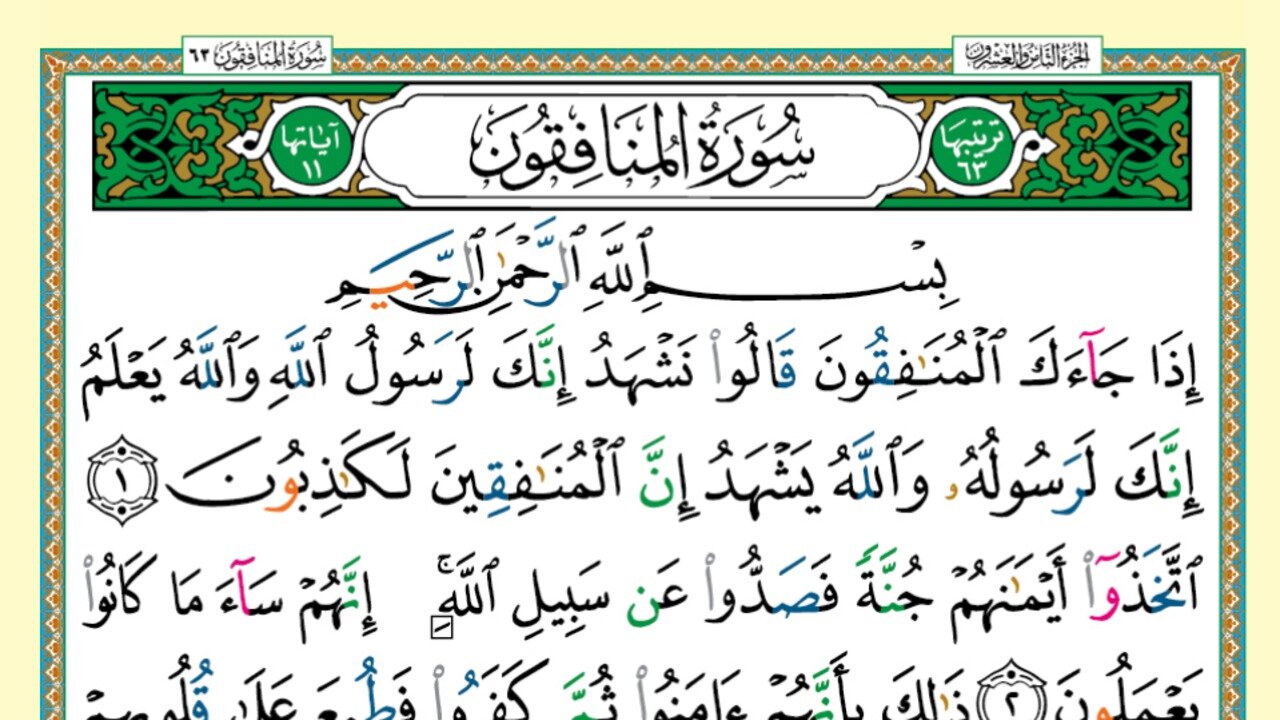 الجزء الثامن والعشرون
سورة المنافقون ٦٣
ترتيبها ٦٣
سُورَةُ المُنَافِقُونَ
آياتها ١١
بِسْمِ ٱللَّهِ ٱلرَّحْمَٰنِ ٱلرَّحِيمِ
إِذَا جَآءَكَ ٱلْمُنَٰفِقُونَ قَالُوا۟ نَشْهَدُ إِنَّكَ لَرَسُولُ ٱللَّهِ وَٱللَّهُ يَعْلَمُ
إِنَّكَ لَرَسُولُهُۥ وَٱللَّهُ يَشْهَدُ إِنَّ ٱلْمُنَٰفِقِينَ لَكَٰذِبُونَ ١
ٱتَّخَذُوٓا۟ أَيْمَٰنَهُمْ جُنَّةً فَصَدُّوا۟ عَن سَبِيلِ ٱللَّهِۚ إِنَّهُمْ سَآءَ مَا كَانُوا۟
يَعْمَلُونَ ٢ ذَٰلِكَ بِأَنَّهُمْ ءَامَنُوا۟ ثُمَّ كَفَرُوا۟ فَطُبِعَ عَلَىٰ قُلُوبِهِمْ